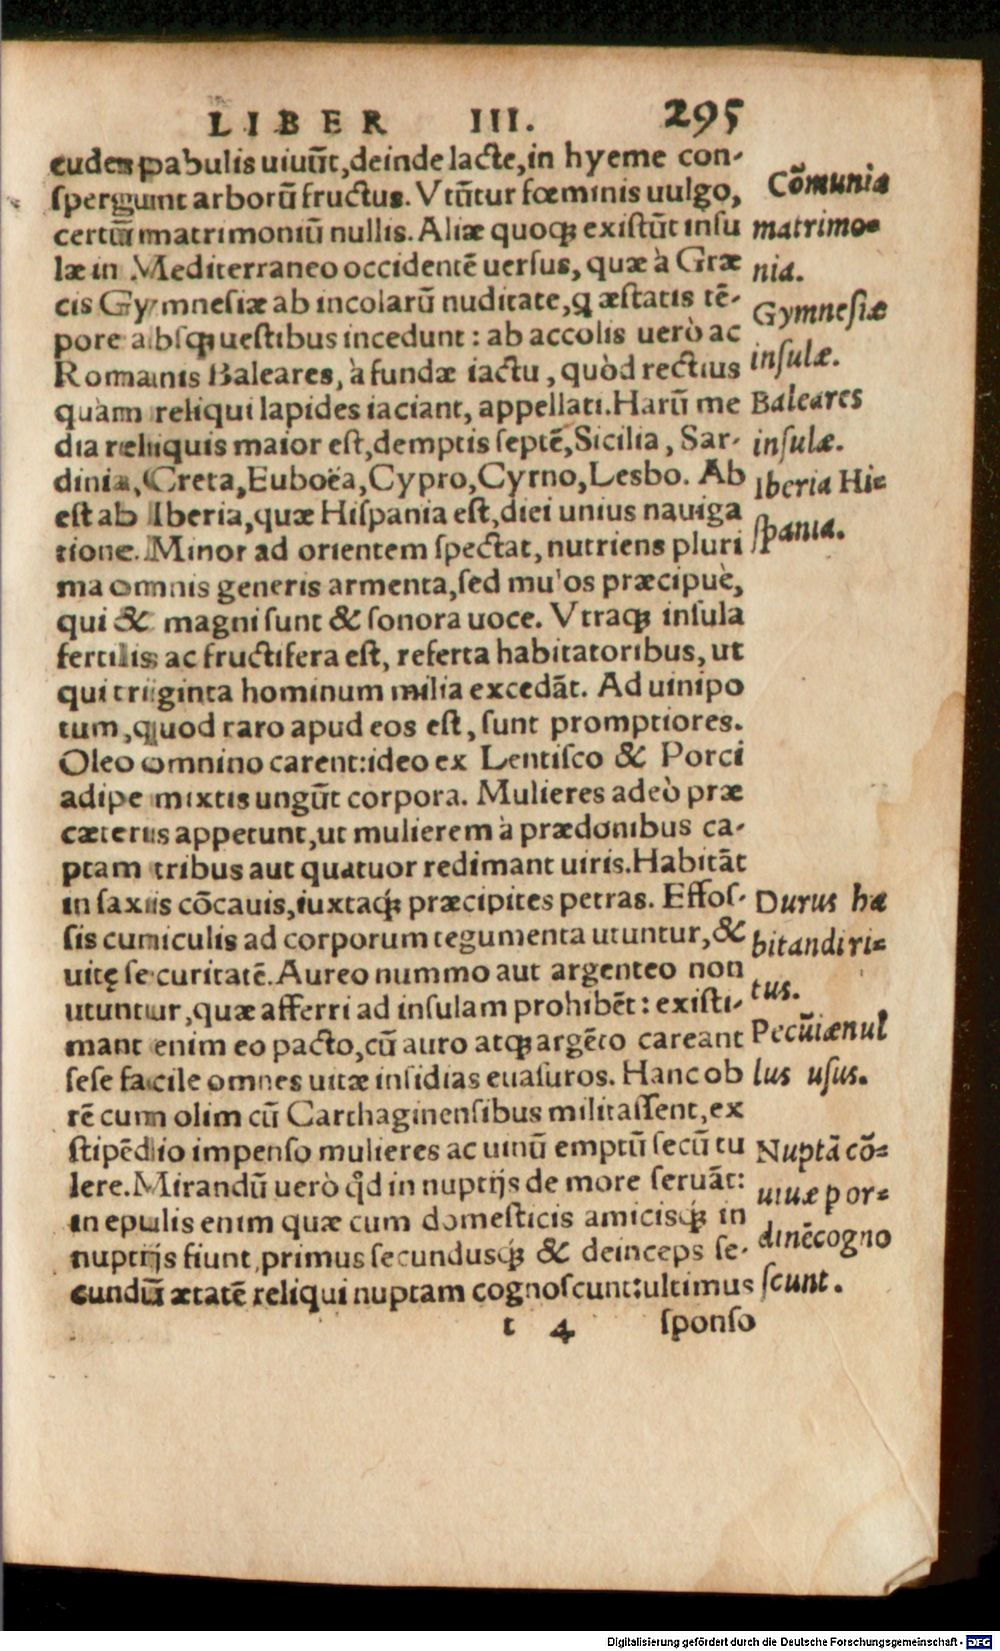 LIBER III. 295
eudes pabulis uiuũt, deinde lacte, in hyeme con-
sperguint arborũ fructus. Vtũtur fœminis uulgo,
certũ matrimoniũ nullis. Aliæ quoqꝫ existũt insu
læ in Mediterraneo occidentẽ uersus, quæ à Græ
cis Gymnesiæ ab incolarũ nuditate, ꝙ æstatis tẽ-
pore absqꝫ uestibus incedunt: ab accolis uerò ac
Romanis Baleares, à fundæ iactu, quòd rectius
quàm reliqui lapides iaciant, appellati. Harũ me
dia reliquis maior est, demptis septẽ, Sicilia, Sar-
dinia, Creta, Euboëa, Cypro, Cyrno, Lesbo. Ab
est ab Iberia, quæ Hispania est, diei unius nauiga
tione. Minor ad orientem spectat, nutriens pluri
ma omnis generis armenta, sed mulos præcipuè,
qui & magni sunt & sonora uoce. Vtraqꝫ insula
fertilis ac fructifera est, referta habitatoribus, ut
qui triginta hominum milia excedãt. Ad uini po
tum, quod raro apud eos est, sunt promptiores.
Oleo omnino carent: ideo ex Lentisco & Porci
adipe mixtis ungũt corpora. Mulieres adeò præ
cæteris appetunt, ut mulierem à prædonibus ca-
ptam tribus aut quatuor redimant uiris. Habitãt
in saxis cõcauis, iuxtaqꝫ præcipites petras. Effos-
sis cuniculis ad corporum tegumenta utuntur, &
uitę securitatẽ. Aureo nummo aut argenteo non
utuntur, quæ afferri ad insulam prohibẽt: existi-
mant enim eo pacto, cũ auro atqꝫ argẽto careant
sese facile omnes uitæ insidias euasuros. Hanc ob
rẽ cum olim cũ Carthaginensibus militassent, ex
stipẽdio impenso mulieres ac uinũ emptũ secũ tu
lere. Mirandũ uerò qd̃ in nuptijs de more seruãt:
in epulis enim quæ cum domesticis amicisqꝫ in
nuptijs fiunt, primus secundusqꝫ & deinceps se-
cundũ ætatẽ reliqui nuptam cognoscunt: ultimus
t 4 sponso
Cõmunia
matrimo=
nia.
Gymnesiæ
insulæ.
Baleares
insulæ.
Iberia Hi=
spania.
Durus ha
bitandi ri=
tus.
Pecũiæ nul
lus usus.
Nuptã cõ=
uiuæ por=
dinẽ cogno
scunt.
Digitalisierung gefördert durch die Deutsche Forschungsgemeinschaft - DFG